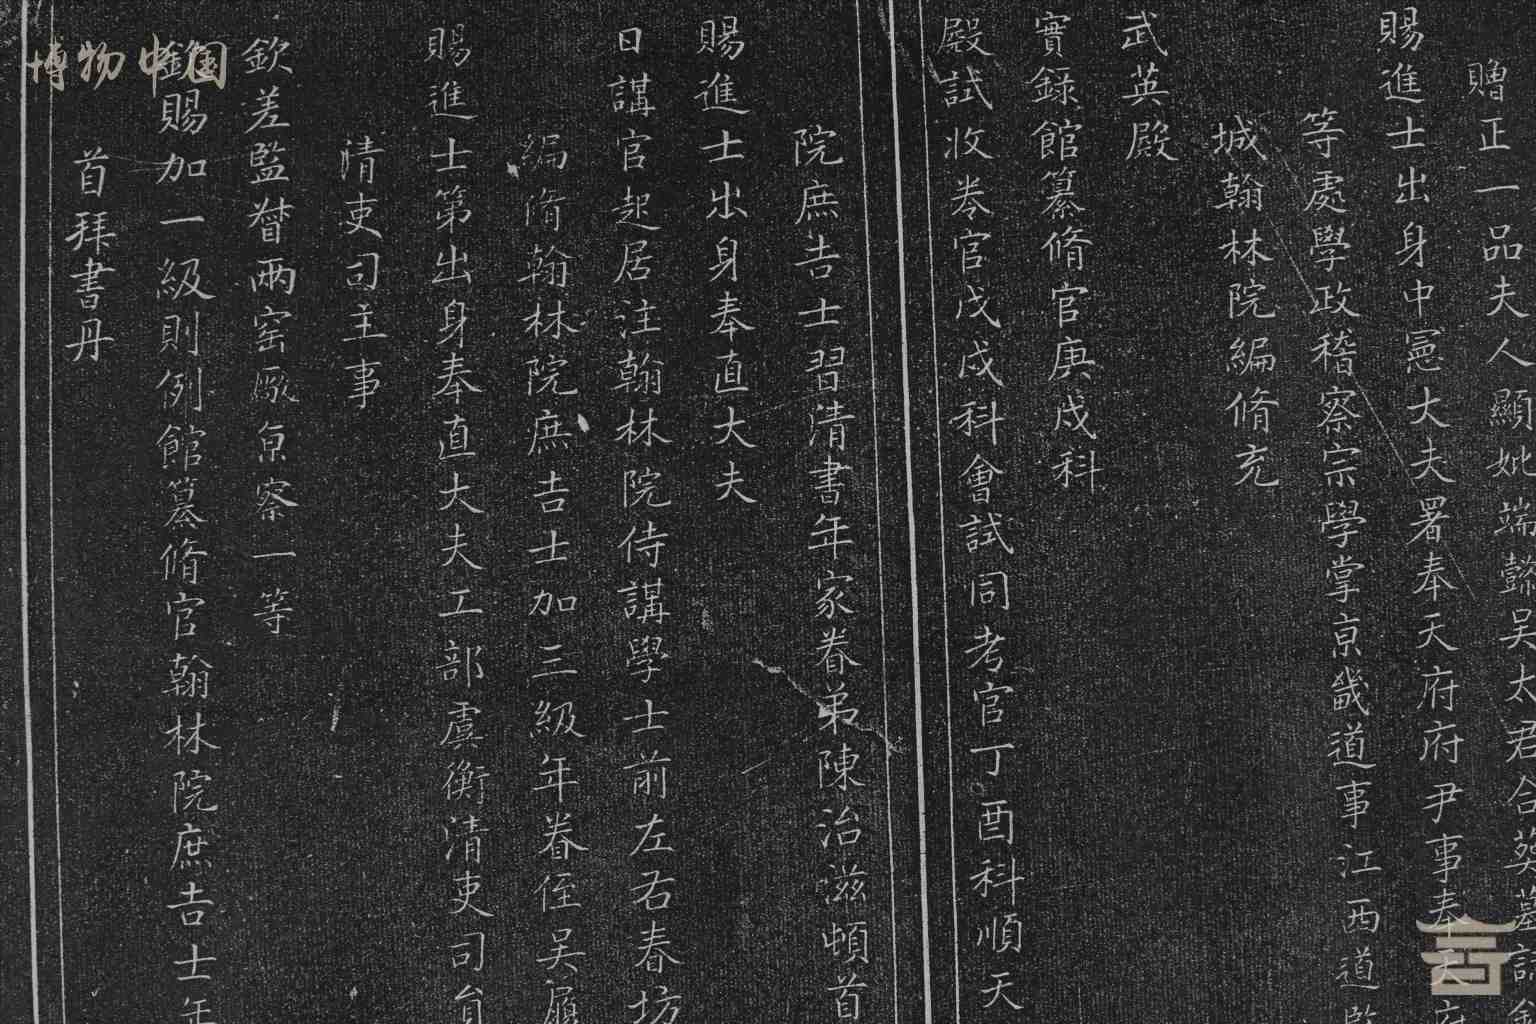 贈正一品夫人顯妣端懿吳太君合葬墓誌銘
賜進士出身中憲大夫署奉天府府尹事奉天府
等處學政稽察宗學掌京畿道事江西道監
城翰林院編脩充
武英殿
實錄館纂脩官庚戌科
殿試收卷官戊戌科會試同考官丁酉科順天
院庶吉士習清書年家眷弟陳治滋頓首
賜進士出身奉直大夫
日講官起居注翰林院侍講學士前左右春坊
編脩翰林院庶吉士加三級年眷侄吳
賜進士第出身奉直大夫工部虞衡清吏司員
清吏司主事
欽差監督兩窑厰京察一等
欽賜加一級則例館纂脩官翰林院庶吉士年
首拜書丹
博物中国